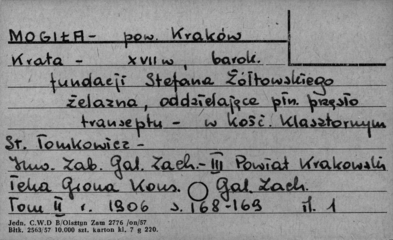 MOGIŁA - pow. Kraków
Krata - XVII w, barok.
fundacji Stefana Żółtowskiego
żelazna, oddzielające płn. przęsło
transeptu - w kość. Klasztornym
St. Tomkowicz -
Inw. Zab. Gal. Zach. - III Powiat Krakowski
Teka Grona Kons. Gal. Zach.
Tom II r. 1906 s. 168-169 il. 1
Jedn. C.W.D B/Olsztyn Zam 2776 /on/57
Bltk. 2563/57 10.000 szt. karton kl. 7 g 220.